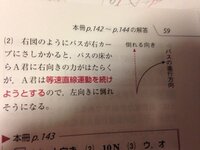 本冊p.142 ～ p.144の解答
59
(2) 右図のようにバスが右カー
ブにさしかかると、バスの床か
らA君に右向きの力がはたらく
が、A君は等速直線運動を続け
ようとするので、左向きに倒れ
そうになる。
倒れる向き
バスの進行方向
本冊 p.143
10N (3) ウ、オ